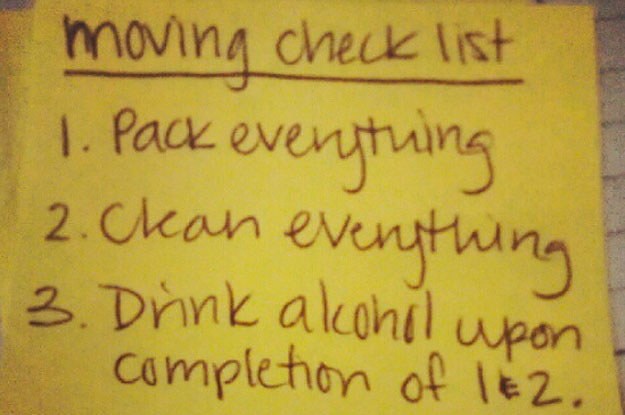 moving check list
1. Pack everything
2. Clean everything
3. Drink alcohol upon
completion of 1 & 2.